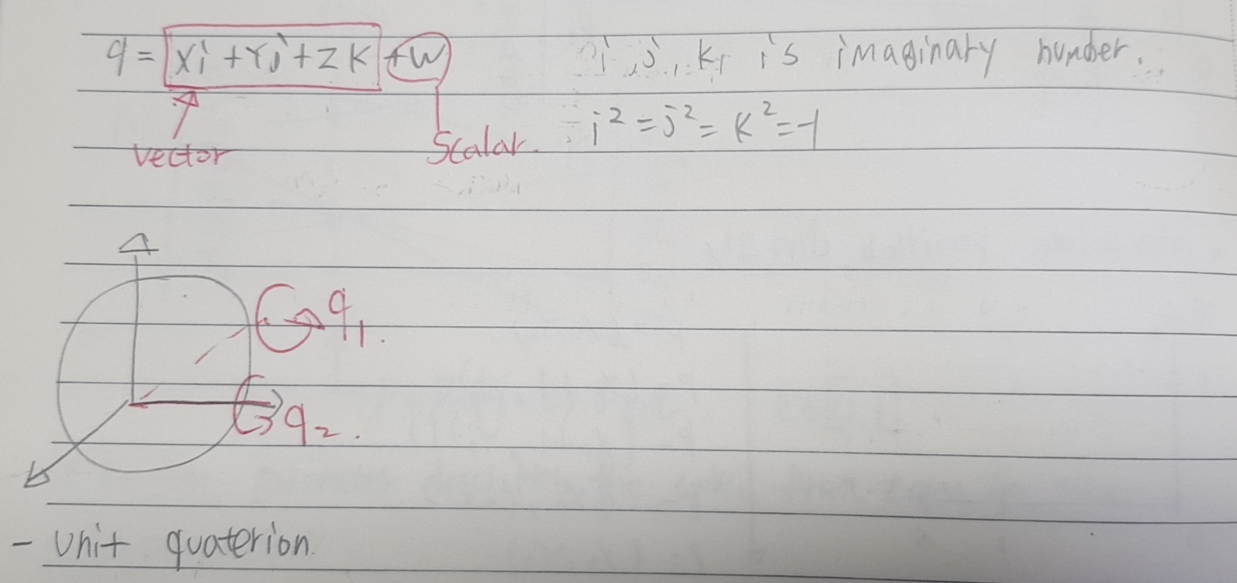 q = xi + Yj + zk + w
i, j, k, is imaginary number.
vector
Scalar.
i² = j² = k² = -1
q₁.
q₂.
- Unit quaterion.